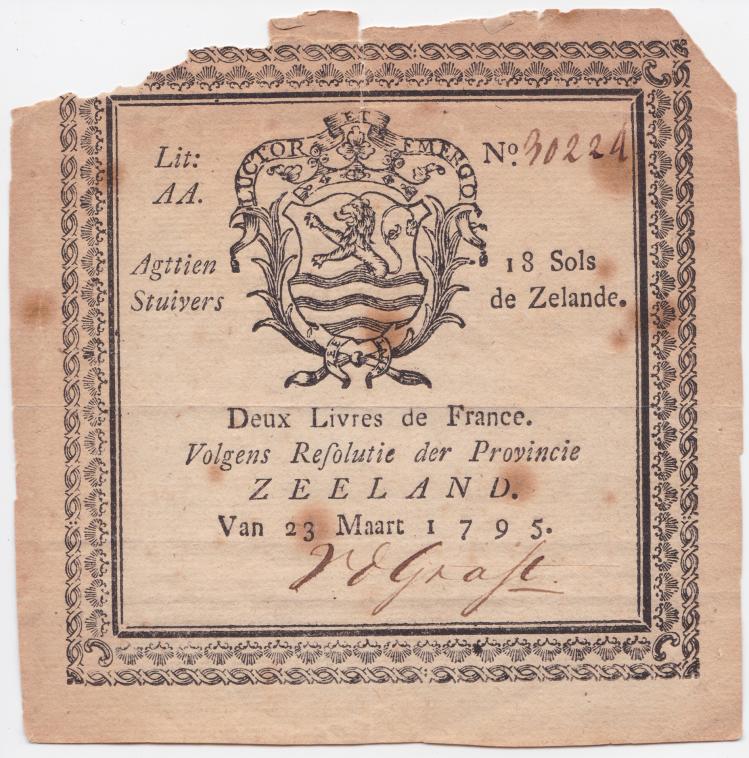 LUCTOR ET EMERGO
Lit:
AA.
No. 30224
Agttien
Stuivers
18 Sols
de Zelande.
Deux Livres de France.
Volgens Reſolutie der Provincie
ZEELAND.
Van 23 Maart 1795.